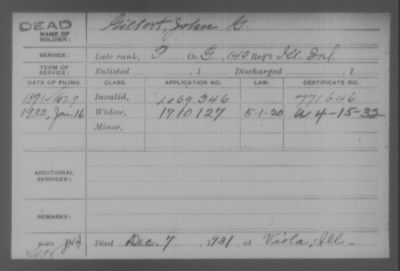 DEAD
NAME OF SOLDIER: Gilbert, John G.
SERVICE: Late rank, P Co. G, 140 Reg't Ill. Inf.
TERM OF SERVICE: Enlisted , 1 Discharged , 1
DATE OF FILING. CLASS. APPLICATION NO. LAW. CERTIFICATE NO.
1891 Invalid, 1069.346 771646
1922, Jan. 16 Widow, 1710127 5-1-20 4-15-22
Minor,
ADDITIONAL SERVICES:
REMARKS:
Died Dec. 7 1921, at Viola, Ill.